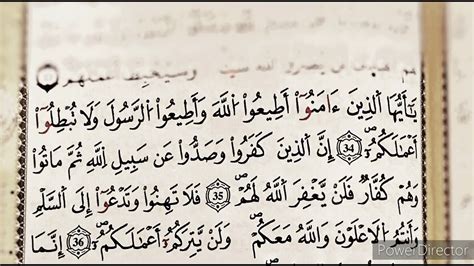 وَسَيُحْبِطُ أَعْمَٰلَهُمْ
يَٰٓأَيُّهَا اَ۬لذِينَ ءَامَنُوٓاْ أَطِيعُواْ اُ۬للَّهَ وَأَطِيعُواْ اُ۬لرَّسُولَ وَلَا تُبْطِلُوٓاْ
أَعْمَٰلَكُمُۥٓ 34 إِنَّ اَ۬لذِينَ كَفَرُواْ وَصَدُّواْ عَن سَبِيلِ اِ۬للَّهِ ثُمَّ مَاتُواْ
وَهُمْ كُفَّارٌ فَلَنْ يَّغْفِرَ اَ۬للَّهُ لَهُمُۥٓ 35 فَلَا تَهِنُواْ وَتَدْعُوٓاْ إِلَى اَ۬لسَّلْمِ
وَأَنتُمُ اُ۬لَاعْلَوْنَ وَاللَّهُ مَعَكُمْ وَلَنْ يَّتِرَكُمُۥٓ أَعْمَٰلَكُمُۥٓ 36 إِنَّمَا
PowerDirector